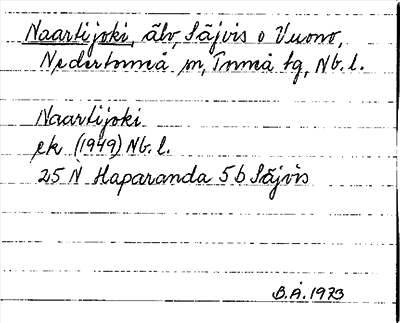 Naartijoki, älv, Säjvis o Vuono,
Nedertorneå sn, Torneå tg, Nb. l.
Naartijoki
ek (1949) Nb. l.
25 N Haparanda 5 b Säjvis
B.Å. 1973